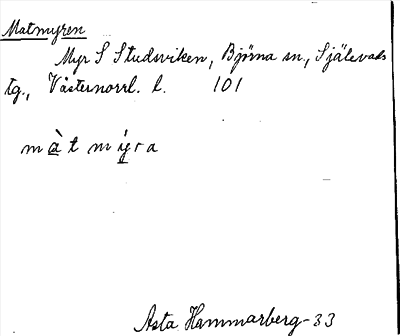 Matmyren
Myr S Studsviken, Björna sn., Själevads
tg., Västernorrl. l. 101
màt mýra
Asta Hammarberg-33